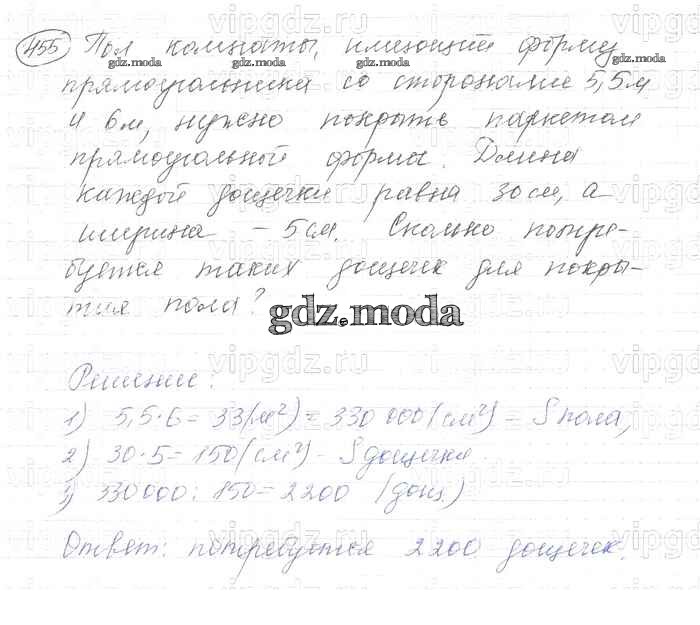 455 Пол комнаты, имеющий форму
прямоугольника со сторонами 5,5м
и 6м, нужно покрыть паркетом
прямоугольной формы. Длина
каждой дощечки равна 30см, а
ширина – 5см. Сколько потре-
буется таких дощечек для покры-
тия пола?
gdz.moda
Решение:
1) 5,5·6=33(м²)=330 000(см²) – S пола,
2) 30·5=150(см²) – S дощечки
3) 330000:150=2200 (дощ.)
Ответ: потребуется 2200 дощечек.